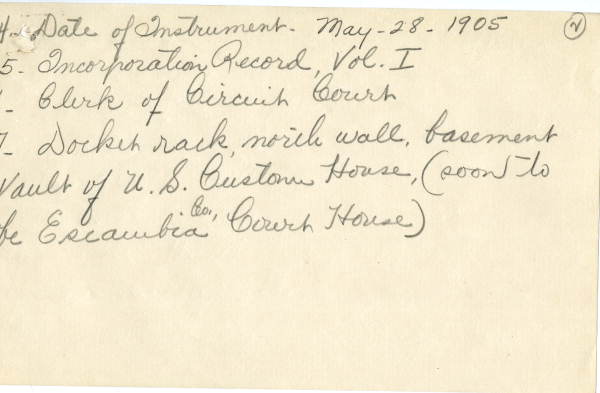 4. Date of Instrument - May - 28 - 1905 (2)
5 - Incorporation Record, Vol. I
- Clerk of Circuit Court
7 - Docket rack, north wall, basement
Vault of U. S. Custom House, (soon to
be Escambia Co., Court House)